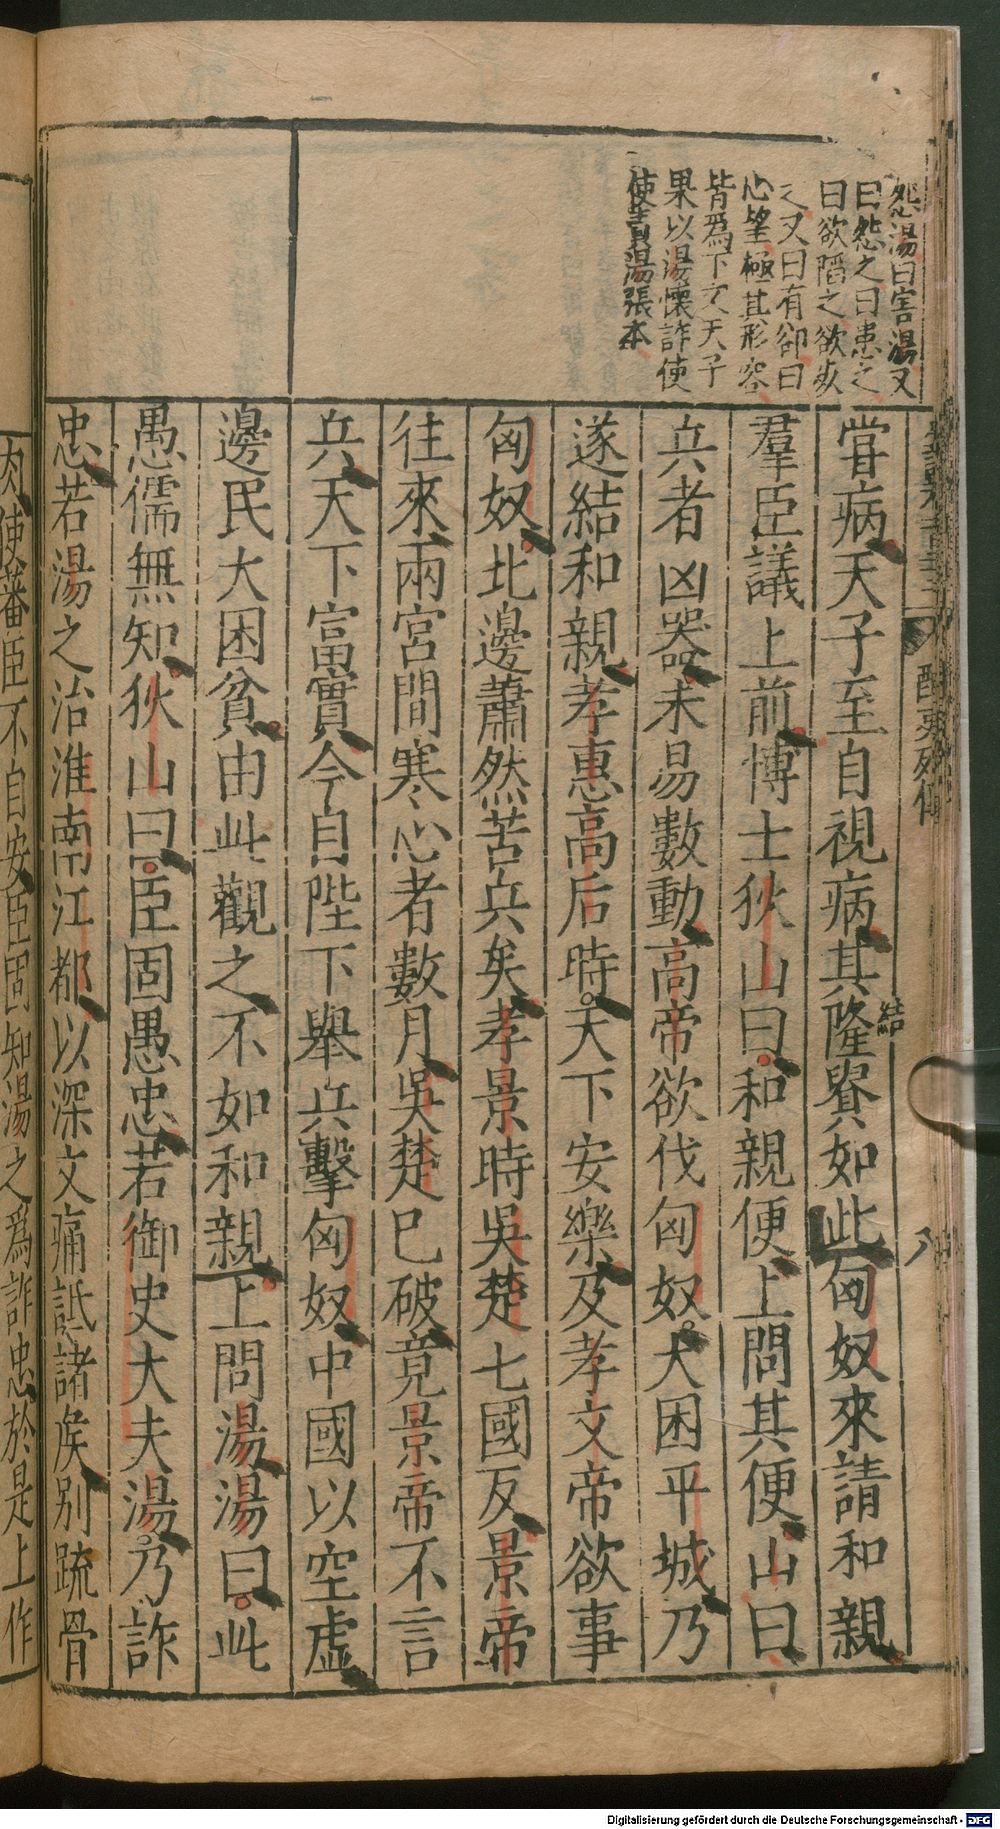 怨湯曰害湯又
曰怨之曰患之
曰欲陷之欲死
之又曰有卻曰
心望極其形容
皆爲下文天子
果以湯懷詐使
使責湯張本
酷吏列傳
八
嘗病天子至自視病其隆貴如此匈奴來請和親
結
羣臣議上前博士狄山曰和親便上問其便山曰
兵者凶器未易數動高帝欲伐匈奴大困平城乃
遂結和親孝惠高后時天下安樂及孝文帝欲事
匈奴北邊蕭然苦兵矣孝景時吳楚七國反景帝
往來兩宮間寒心者數月吳楚已破竟景帝不言
兵天下富實今自陛下舉兵擊匈奴中國以空虛
邊民大困貧由此觀之不如和親上問湯湯曰此
愚儒無知狄山曰臣固愚忠若御史大夫湯乃詐
忠若湯之治淮南江都以深文痛詆諸侯別疏骨
肉使藩臣不自安臣固知湯之爲詐忠於是上作
Digitalisierung gefördert durch die Deutsche Forschungsgemeinschaft - DFG